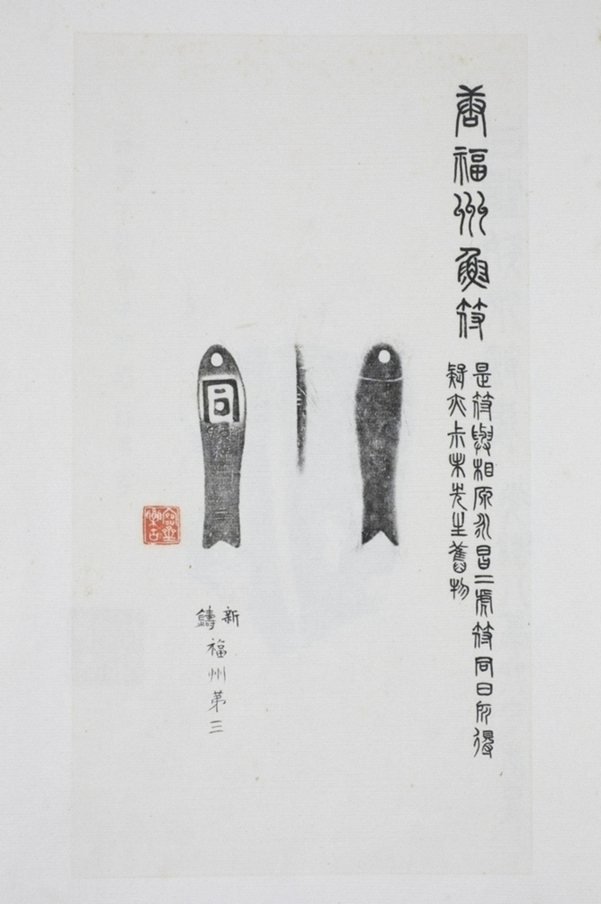 唐福州魚符
是符與相原永昌二虎符同日所得
疑亦尗未先生舊物
同
新鑄福州第三